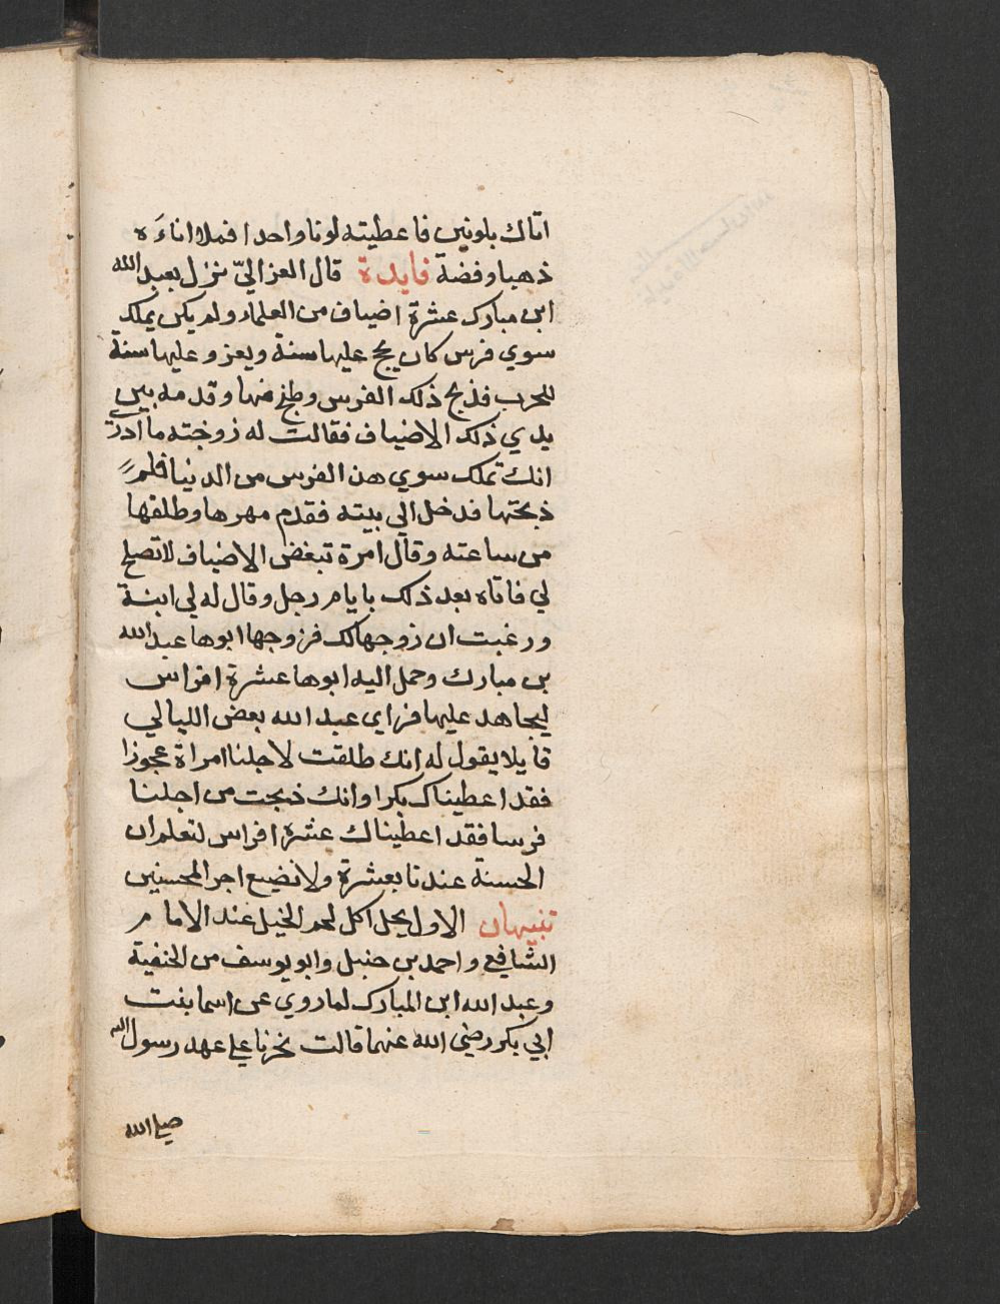 اتاك بلونين فاعطيته لونا واحدا فملا اناءَه
ذهبا وفضة فايدة قال الغزاليّ نزل بعبد الله
ابن مبارك عشرة اضياف من العلماء ولم يكن يملك
سوي فرس كان يحج عليها سنة ويغزو عليها سنة
للحرب فذبح ذلك الفرس وطبخ منها وقدمه بين
يدي ذلك الاضياف فقالت له زوجته ما ادر
انك تملك سوي هذ الفرس من الدنيا فلم
ذبحتها فدخل الي بيته فقدم مهرها وطلقها
من ساعته وقال امرة تبغض الاضياف لا تصلح
لي فاتاه بعد ذلك بايام رجل وقال له لي ابنة
ورغبت ان زوجها لك فزوجها ابوها عبد الله
بن مبارك وحمل اليه ابوها عشرة افراس
ليجاهد عليها فراي عبد الله بعض الليالي
قايلا يقول له انك طلقت لاجلنا امراة عجوزا
فقد اعطيناك بكرا وانك ذبحت من اجلنا
فرسا فقد اعطيناك عشرة افراس لتعلم ان
الحسنة عندنا بعشرة ولا نضيع اجر المحسنين
تنبيهان الاول يحل اكل لحم الخيل عند الامام
الشافعي واحمد بن حنبل وابو يوسف من الحنفية
وعبد الله ابن المبارك لما روي عن اسما بنت
ابي بكر رضي الله عنهما قالت نحرنا علي عهد رسول الله
صلي الله